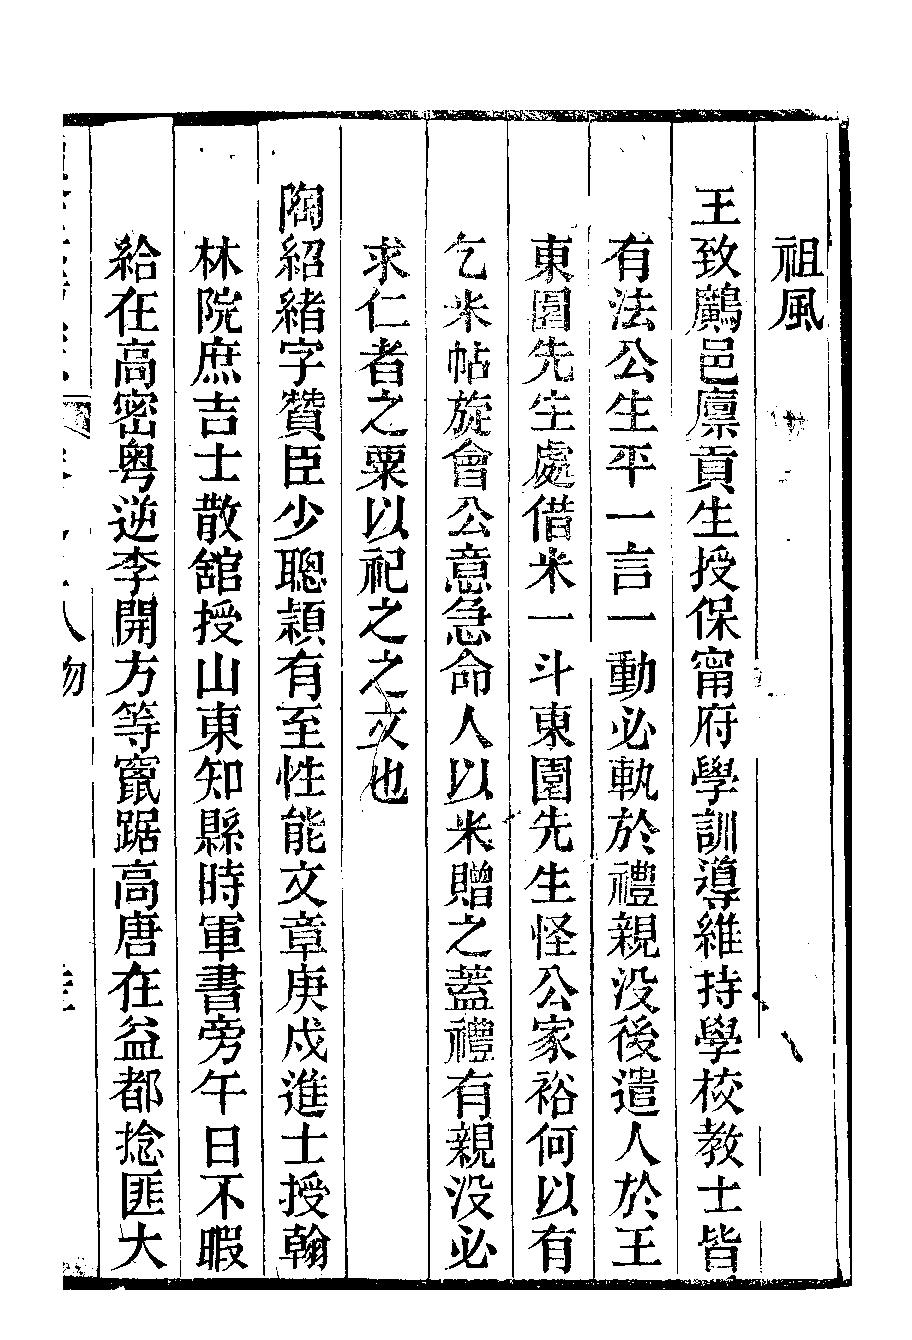 祖風
王致鷴邑廩貢生授保甯府學訓導維持學校教士皆
有法公生平一言一動必軌於禮親没後遣人於王
東園先生處借米一斗東園先生怪公家裕何以有
乞米帖旋會公意急命人以米贈之蓋禮有親没必
求仁者之粟以祀之之文也
陶紹緒字贊臣少聰穎有至性能文章庚戍進士授翰
林院庶吉士散舘授山東知縣時軍書旁午日不暇
給在高密粤逆李開方等竄踞高唐在益都捻匪大
人物